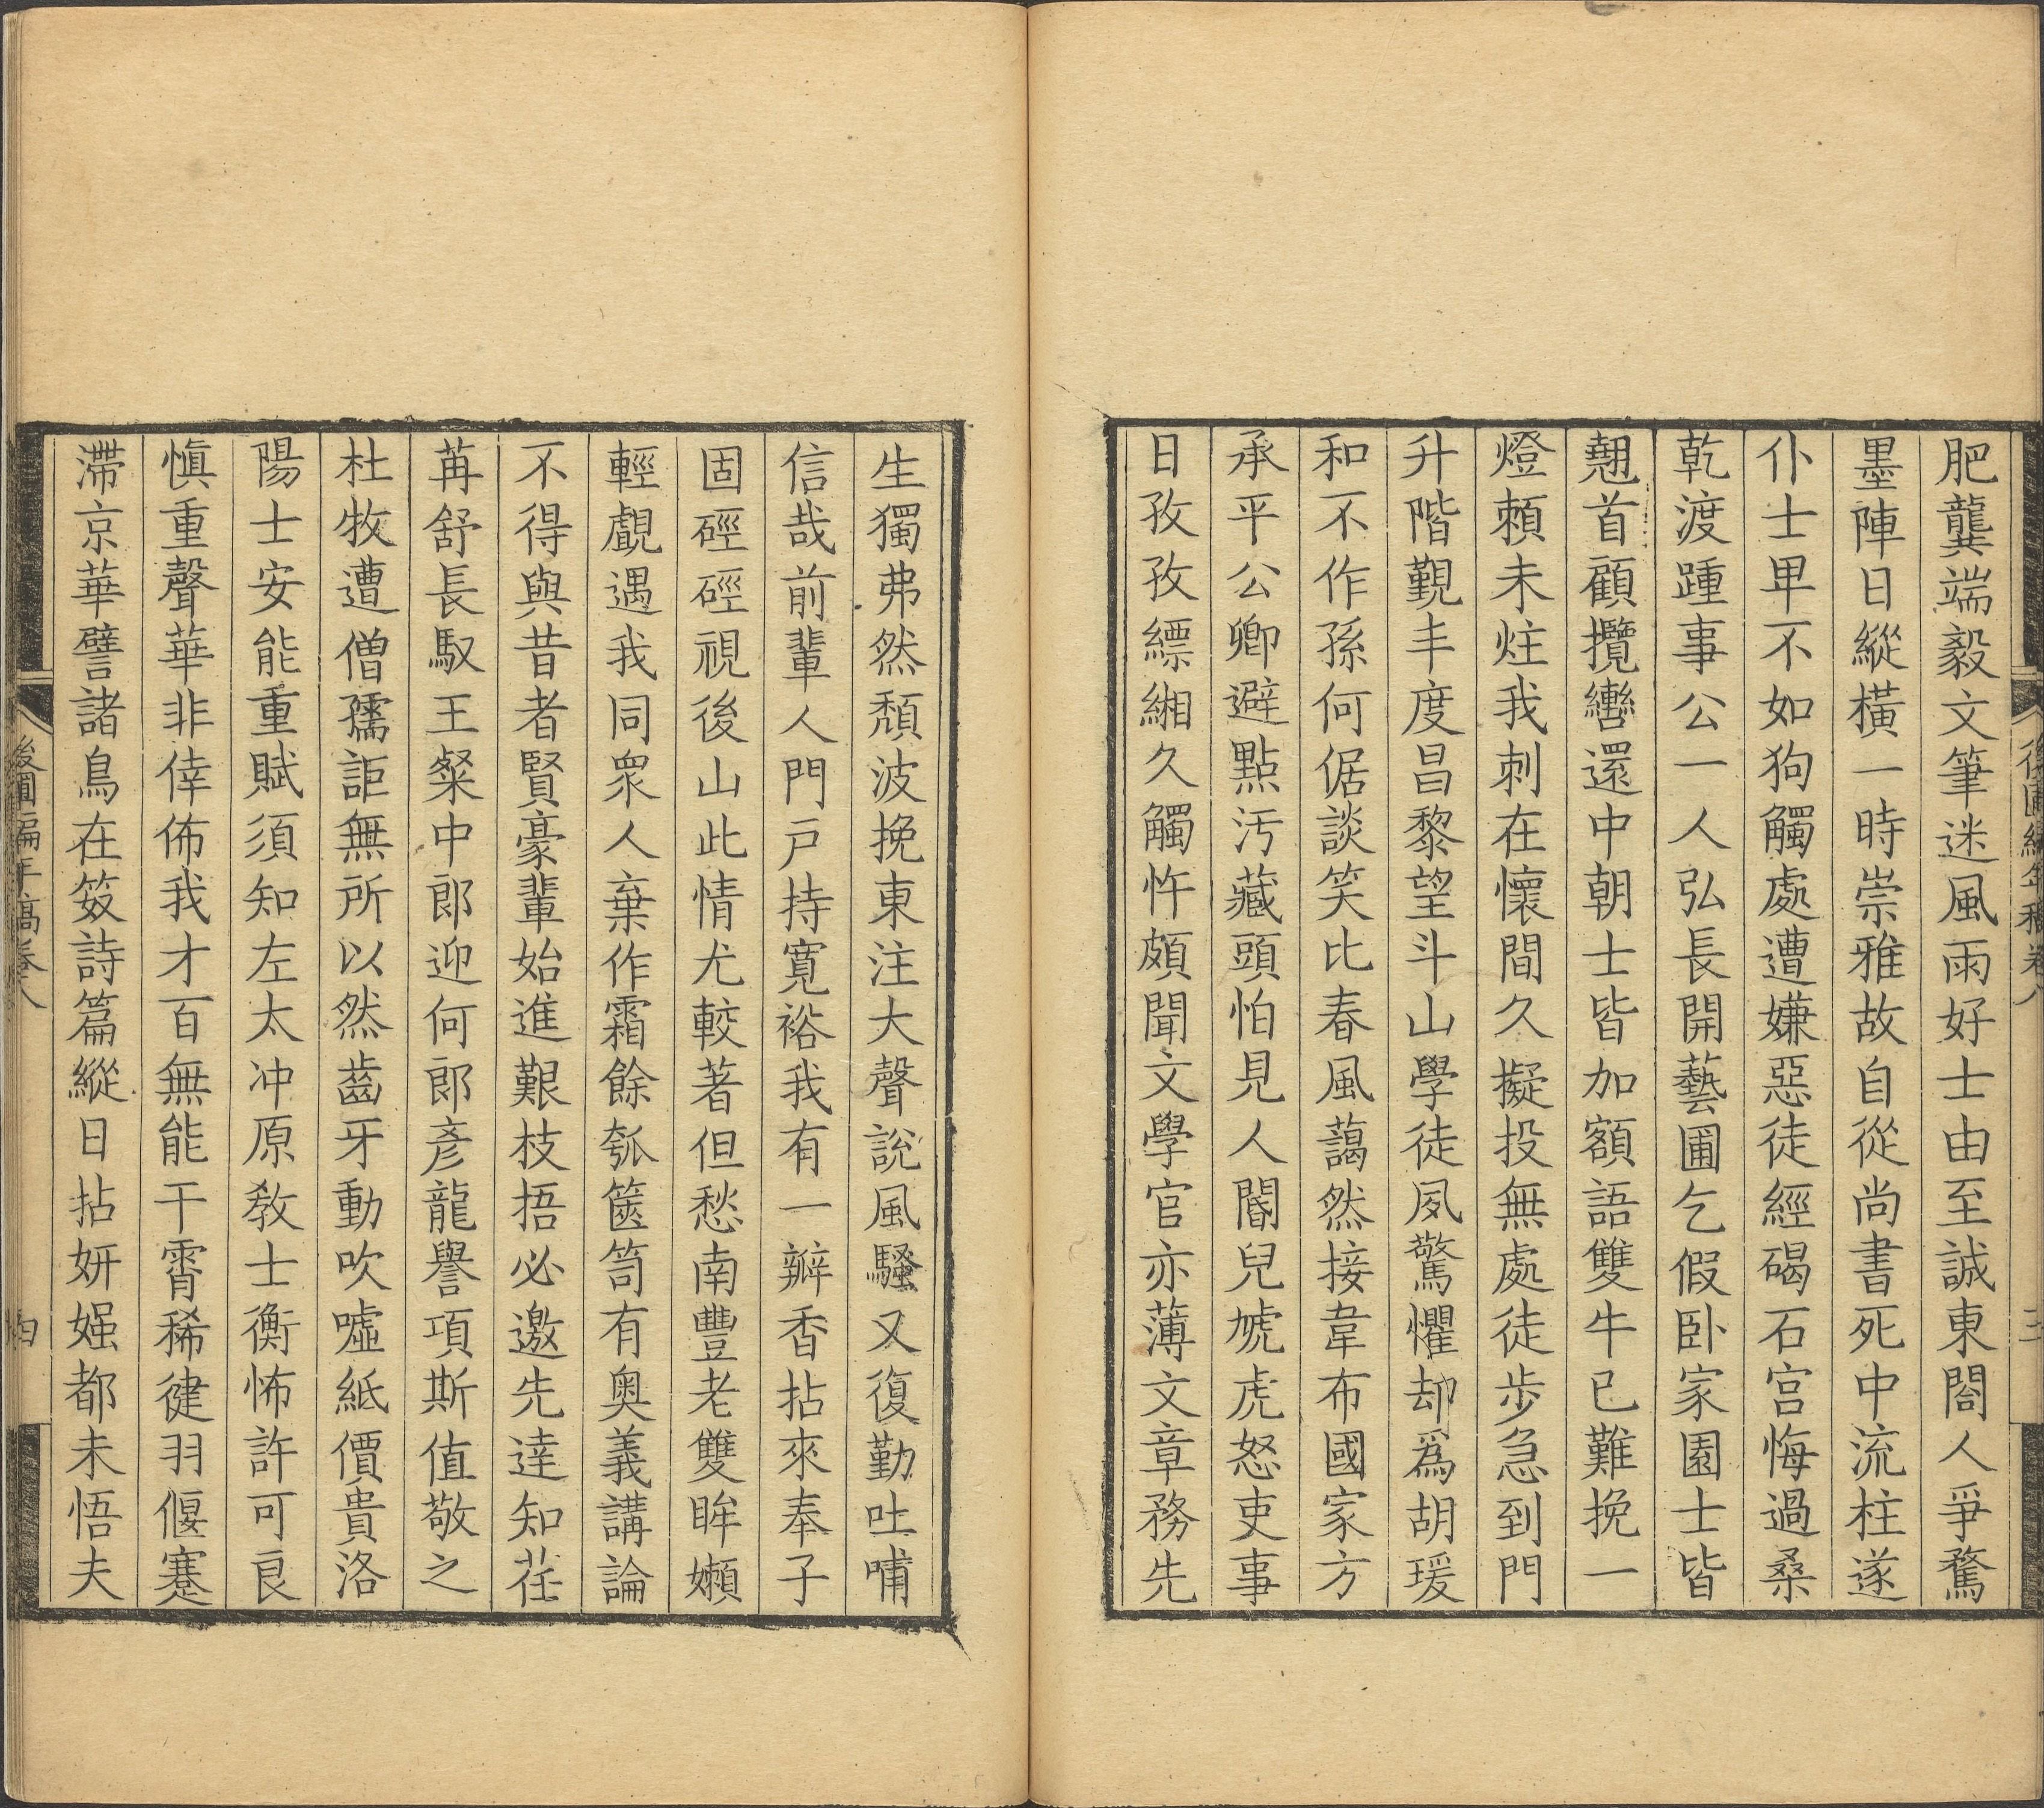 肥龔端毅文筆迷風雨好士由至誠東閤人爭騖
墨陣日縱橫一時崇雅故自從尚書死中流柱遂
仆士卑不如狗觸處遭嫌惡徒經碣石宫悔過桑
乾渡踵事公一人弘長開藝圃乞假臥家園士皆
翹首顧攬轡還中朝士皆加額語雙牛已難挽一
燈賴未炷我刺在懷間久擬投無處徒步急到門
升階覲丰度昌黎望斗山學徒夙驚懼却爲胡瑗
和不作孫何倨談笑比春風藹然接韋布國家方
承平公卿避點汚藏頭怕見人閽兒虓虎怒吏事
日孜孜縹緗久觸忤頗聞文學官亦薄文章務先
生獨弗然頹波挽東注大聲說風騷又復勤吐哺
信哉前輩人門戸持寛裕我有一瓣香拈來奉子
固硜硜視後山此情尤較著但愁南豐老雙眸嬾
輕覰遇我同衆人棄作霜餘瓠篋笥有奥義講論
不得與昔者賢豪輩始進艱枝捂必邀先達知荏
苒舒長馭王粲中郎迎何郎彥龍譽項斯值敬之
杜牧遭僧孺詎無所以然齒牙動吹噓紙價貴洛
陽士安能重賦須知左太冲原教士衡怖許可良
愼重聲華非倖佈我才百無能干霄稀健羽偃蹇
滯京華譬諸鳥在笯詩篇縱日拈妍媸都未悟夫
後圃編年稿卷八
三
後圃編年稿卷八
四